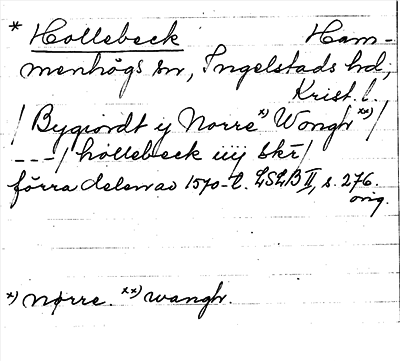 * Hollebeck Ham-
menhögs sn, Ingelstads hd,
Krist. l.
/ Bygiordt y Norre x) Wongh xx) /
---/ hollebeck iiij skr/
förra delen av 1570-t. LSLB II, s. 276.
orig.
x) nørre. xx) wangh.